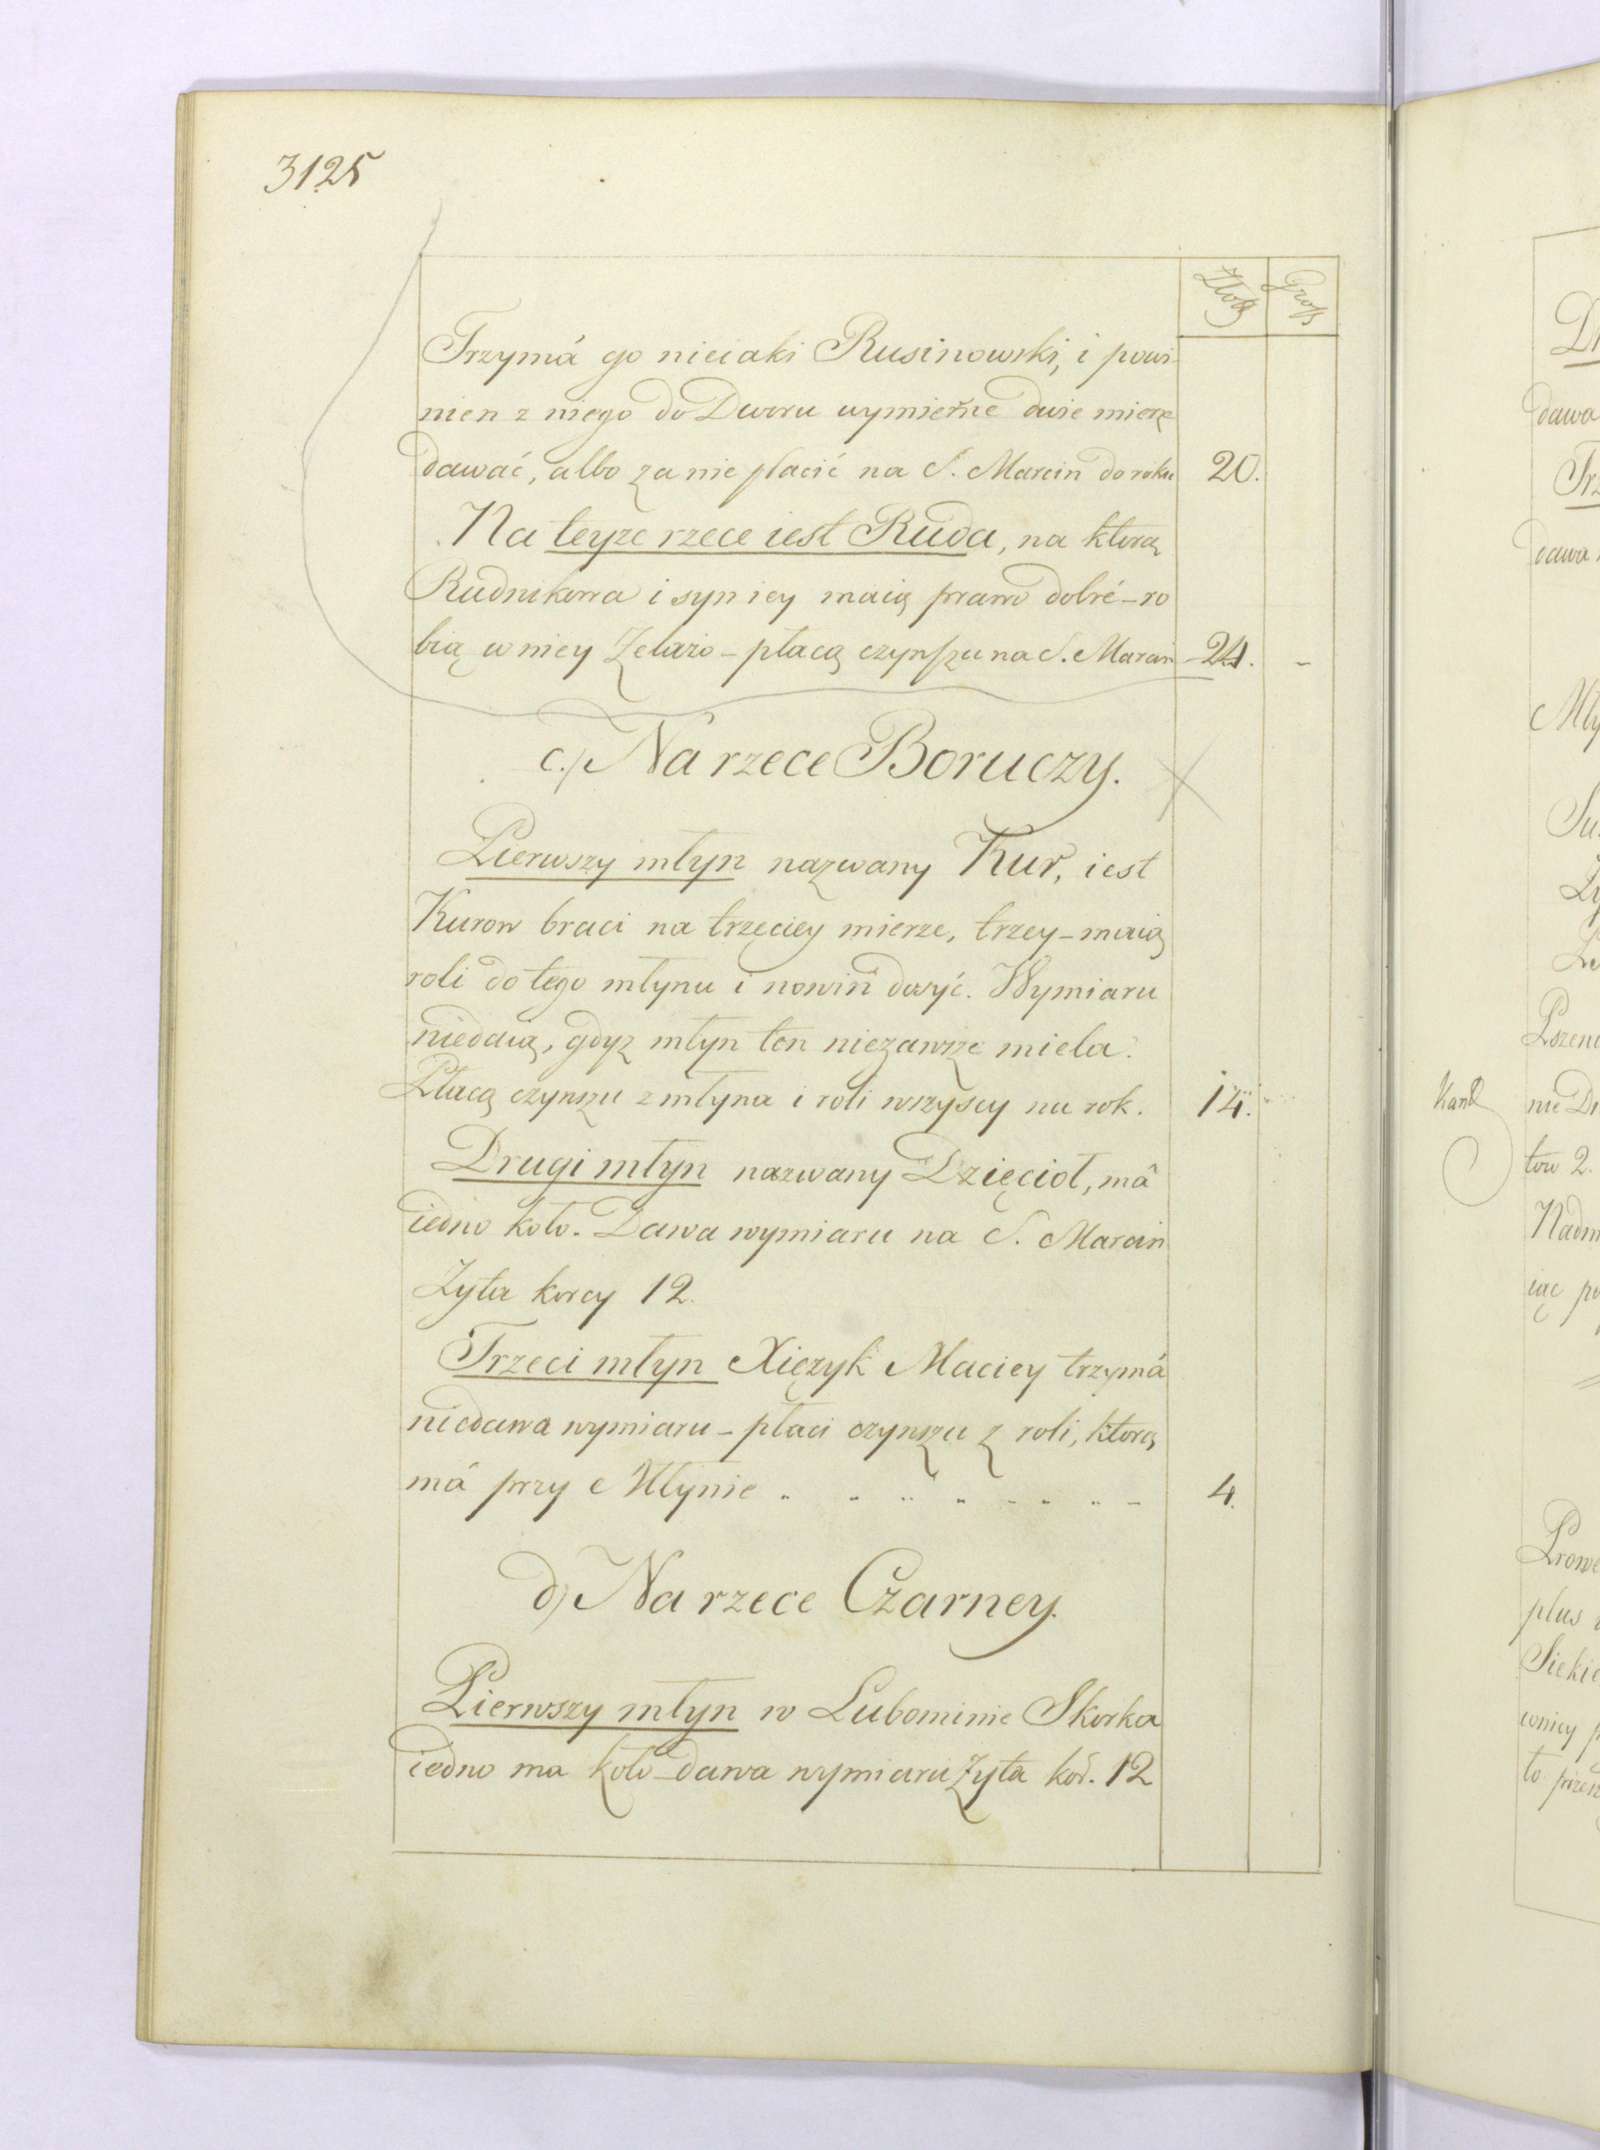 3125
Złotę Gross
Trzymá go nieiaki Rusinowski, i powi-
nien z niego do Dworu wymierne dwie mierę
dawać, albo za nie płacić na S. Marcin do roku 20.
Na teyże rzece iest Ruda, na którą
Rudnikowa i syn iey maią prawo dobré – ro
bią w niey Żelazo – płacą czynszu na S. Marcin – 24. –
c.) Na rzece Boruczy.
Pierwszy młyn nazwany Kur, iest
Kurow braci na trzęciey mierze, trzey – maią
roli do tego młynu i nowin dosyć. Wymiaru
niedaią, gdyż młyn ten niezawsze miela.
Płacą czynszu z młyna i roli wszyscy na rok. 14.
Drugi młyn nazwany Dzięcioł, má
iedno koło. Dawa wymiaru na S. Marcin
Żyta korcy 12.
Trzeci młyn Xiężyk Maciey trzymá
niedawa wymiaru – płaci czynszu z roli, którą
má przy Młynie . . . . . – . . – 4.
d) Na rzece Czarney.
Pierwszy młyn w Lubominie Skorka
iedno ma koło – dawa wymiaru Żyta kor. 12
dawa
dawa
Mły
Pszeni
nie Dr
tow 2.
Nadm
iąc po
Prowe
plus
Siekie